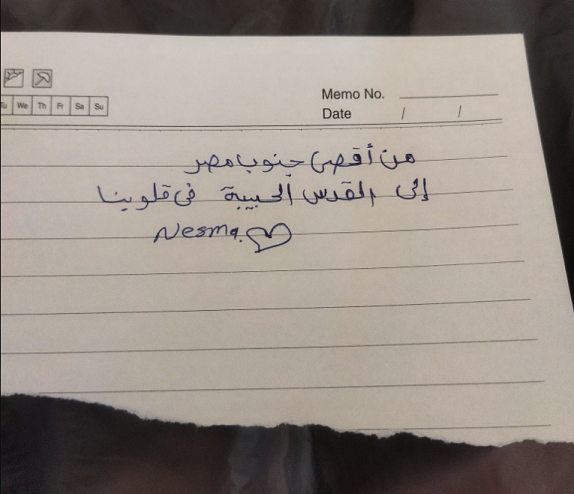 Tu We Th Fr Sa Su
Memo No.
Date / /
من أقصى جنوب مصر
إلى القدس الحبيبة فى قلوبنا
Nesma.